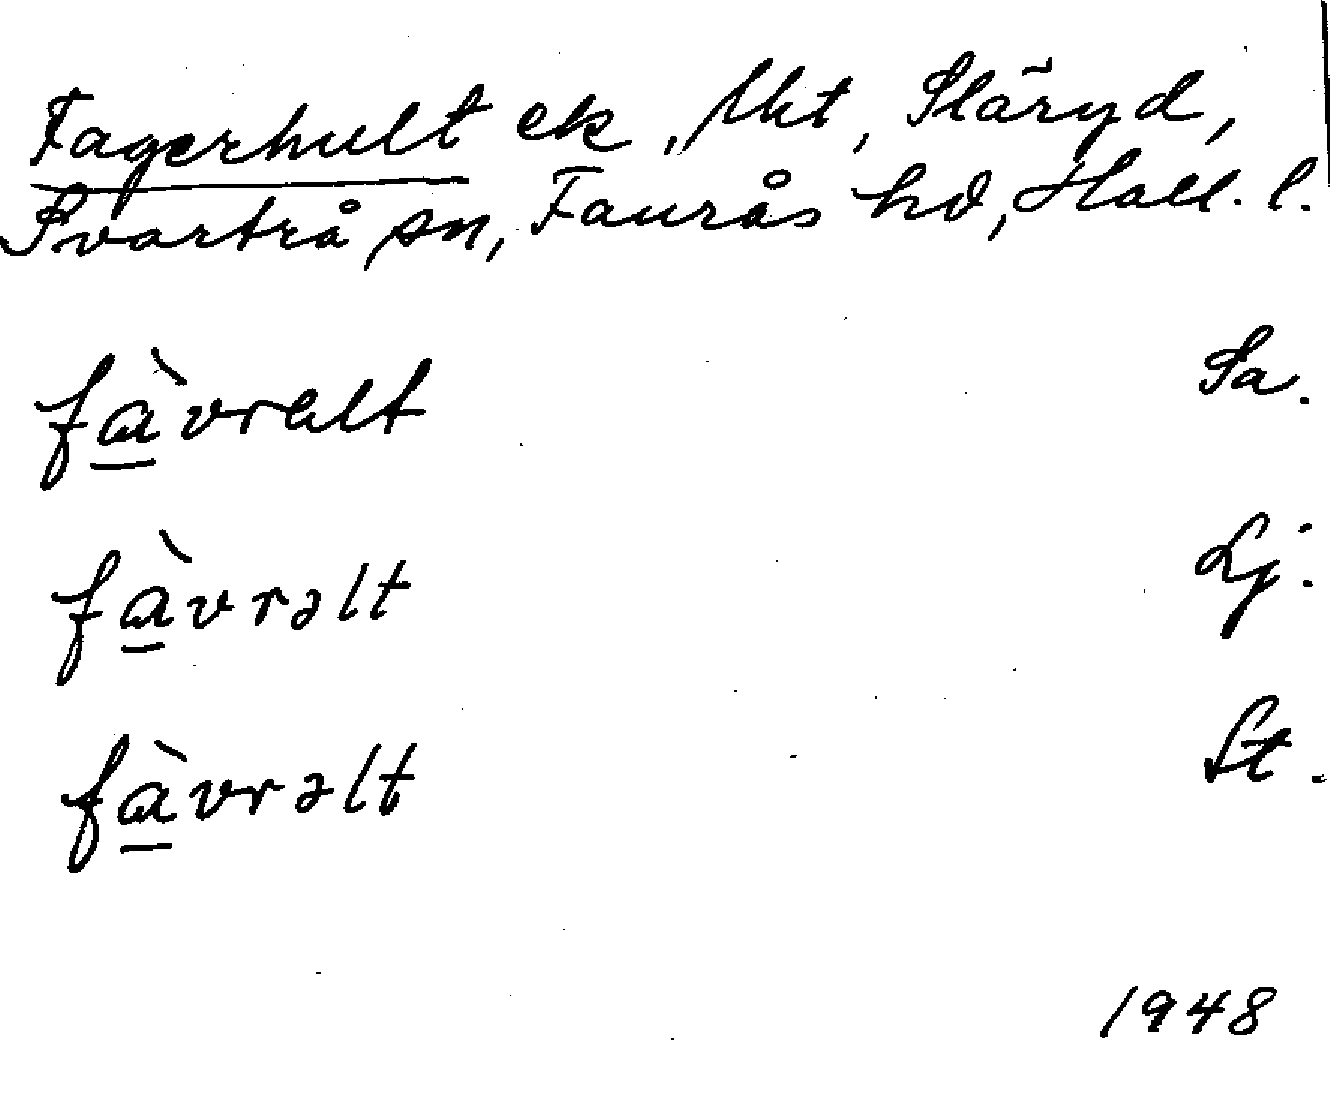 Fagerhult ek, Ukt, Släryd,
Svartrå sn, Faurås hd, Hall. l.
fàvrelt Sa.
fàvrəlt Lj.
fàvrəlt St.
1948